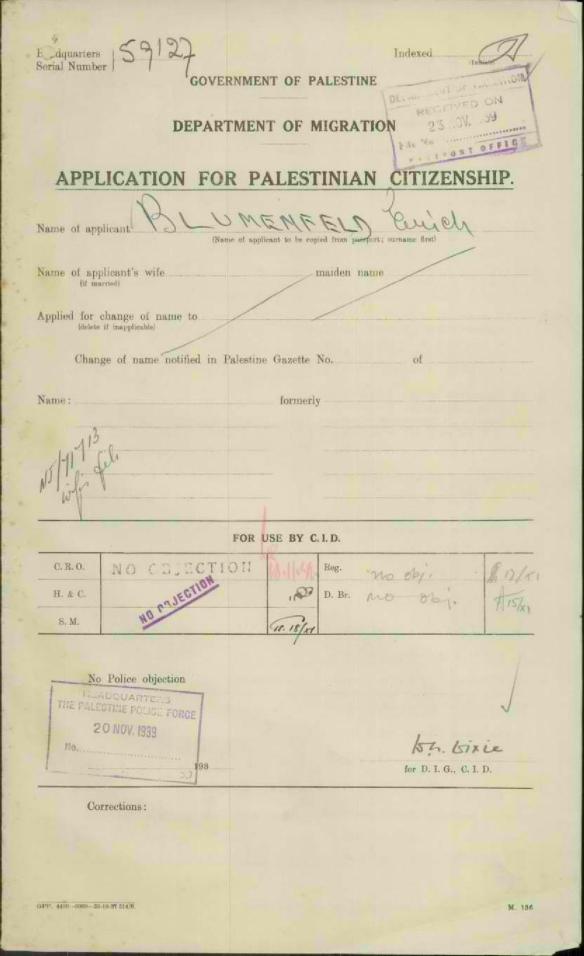 Headquarters
Serial Number 59127
Indexed
(Initials)
GOVERNMENT OF PALESTINE
DEPARTMENT OF MIGRATION
RECEIVED ON
23 NOV. 39
PASSPORT OFFICE
APPLICATION FOR PALESTINIAN CITIZENSHIP.
Name of applicant BLUMENFELD Erich
(Name of applicant to be copied from passport; surname first)
Name of applicant's wife maiden name
(if married)
Applied for change of name to
(delete if inapplicable)
Change of name notified in Palestine Gazette No. of
Name: formerly
FOR USE BY C.I.D.
C.R.O. NO OBJECTION Reg. no obj.
H. & C. NO OBJECTION D. Br. no obj.
S. M.
No Police objection
HEADQUARTERS
THE PALESTINE POLICE FORCE
20 NOV. 1939
No.
193
for D. I. G., C. I. D.
Corrections:
M. 136